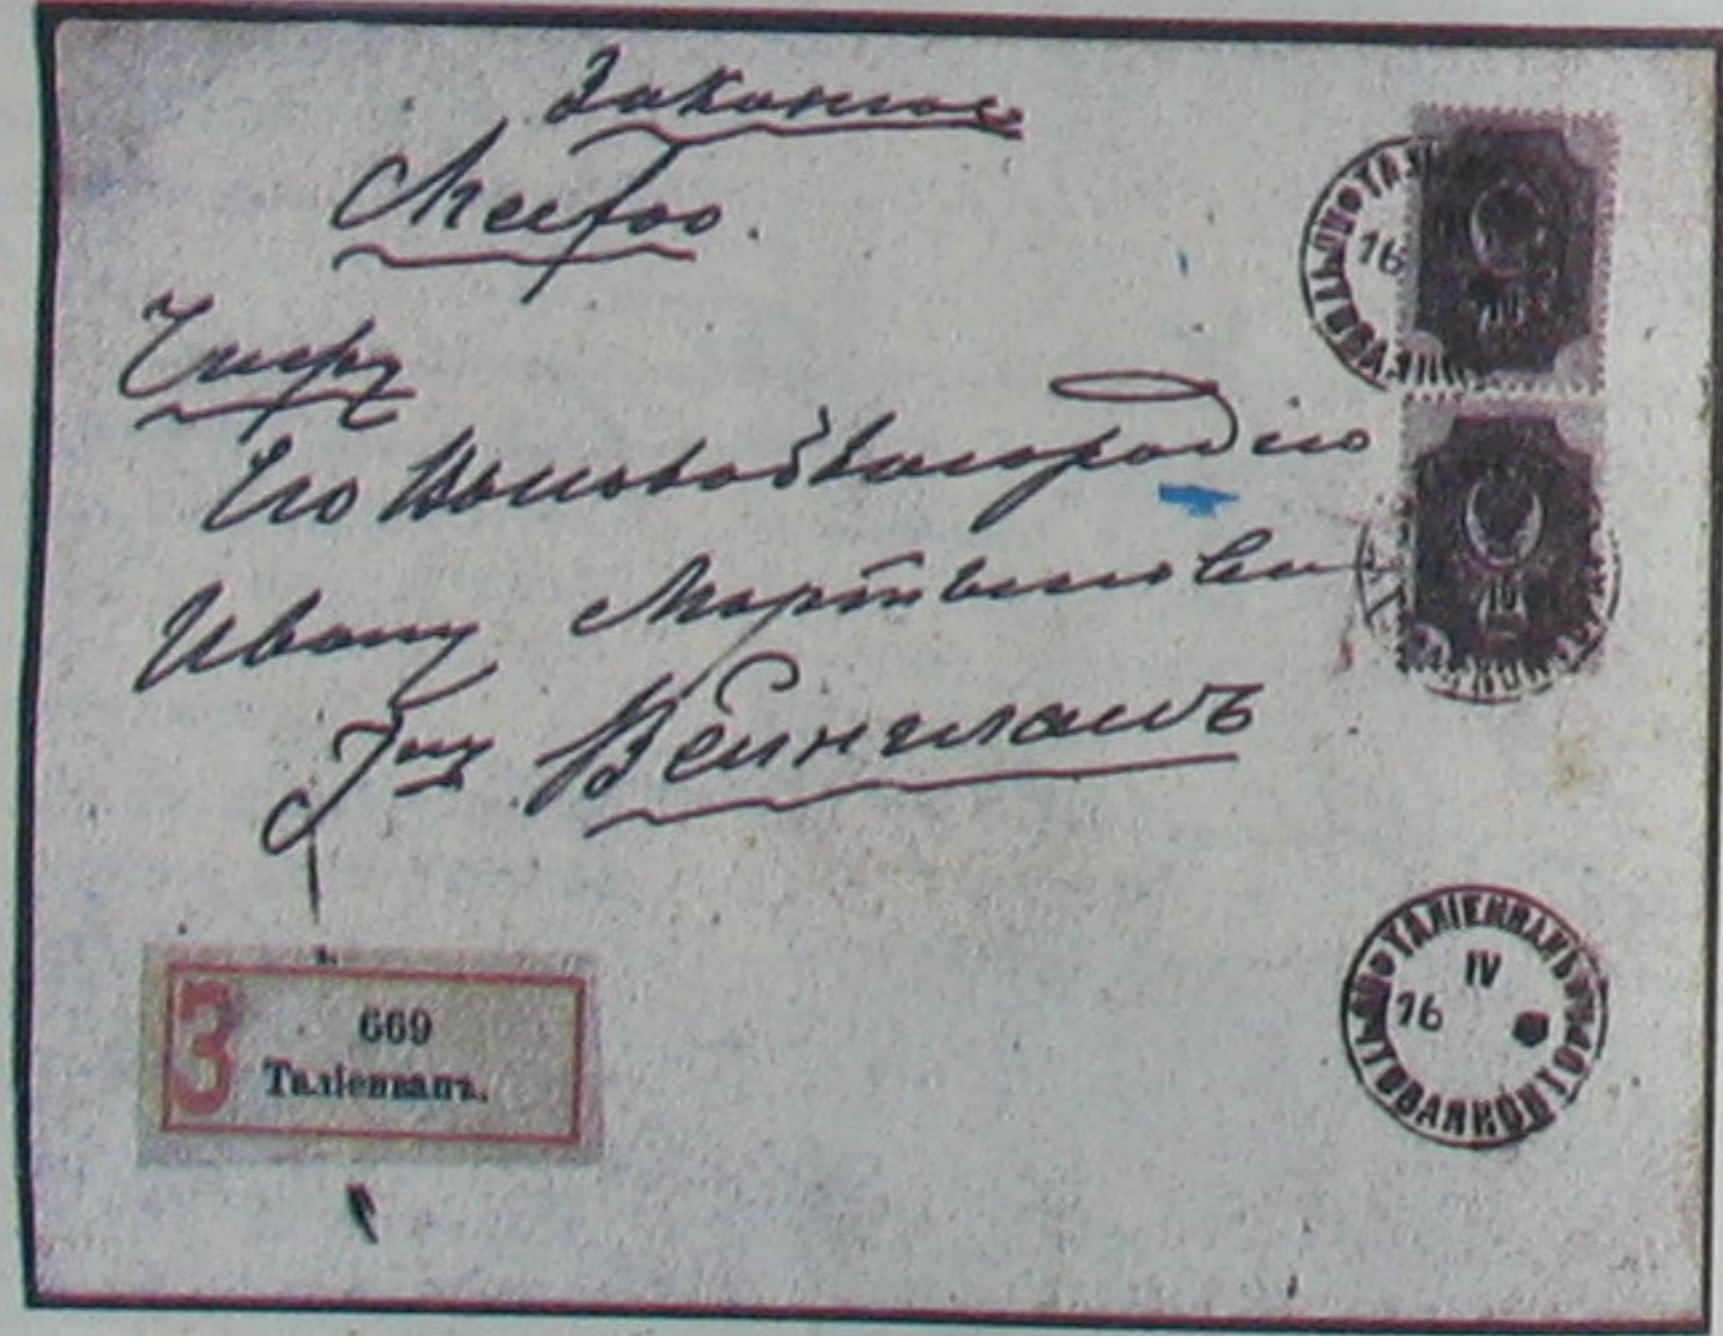 Заказное
Место.
Его Высокоблагородiю
Ивану Мартыновичу
Гну Вейнгласъ
16
10
669
Талiенванъ.
З
ТАЛIЕНВАНЬ
IV
16
ПОЧТОВАЯ КОНТОРА